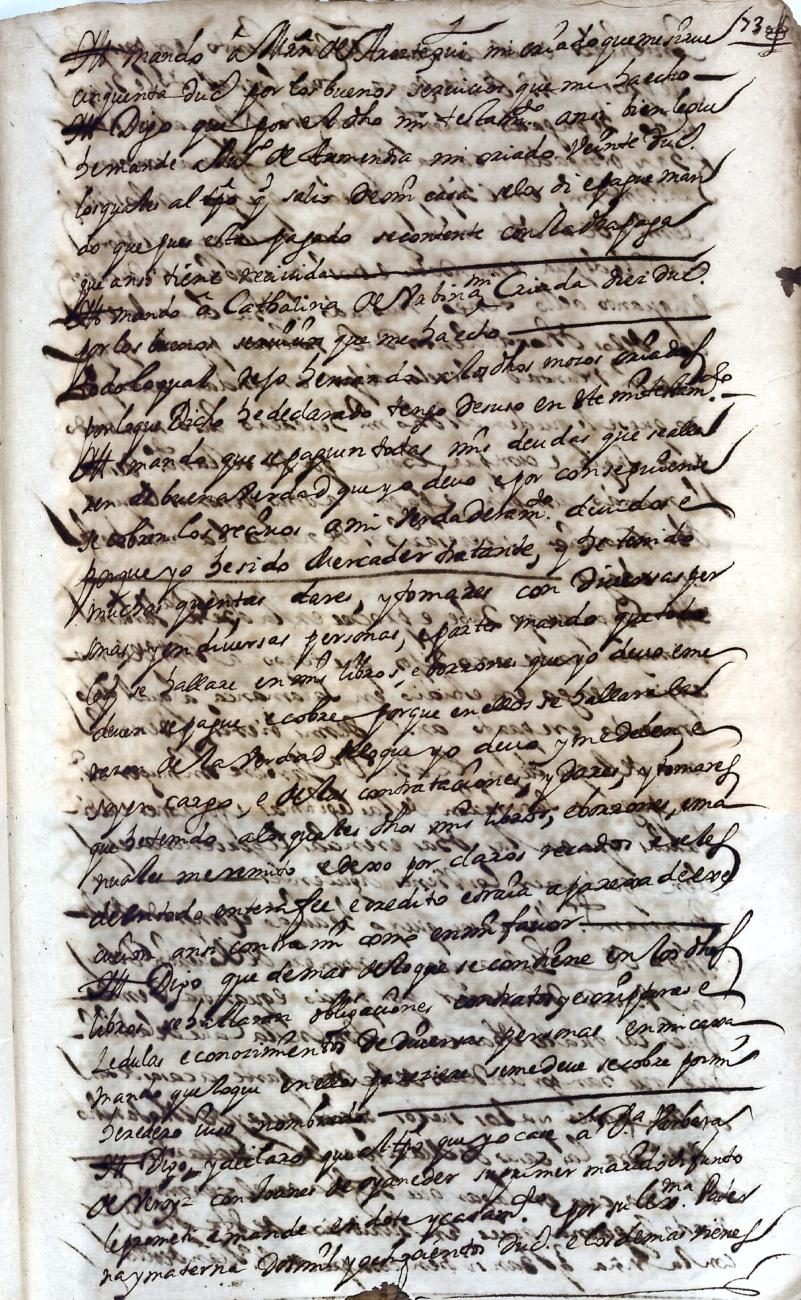 73
Yt mando a Mĩn de Areztegui mi criado que me sirue
cinquenta duc.s por los buenos seruicios que me ha echo
Yt Digo que por el dho mi testam.to ansi bien le ou
he mande a de Armendia mi criado veinte duc.s
los quales al tpo q salio de mi casa se los di e pague man
do que pues esta pagado se contente con la dha paga
que ansi tiene reciuida
Yt mando a Cathalina de mi Criada diez duc.s
por los buenos seruicios que me ha echo
todo lo qual dejo he mando a los dhos mozos criados
por lo que Dicho he declarado tengo de suso en este mi testam.to
Yt mando que se paguen todas mis deudas que se alla
ren de buena verdad que yo deuo e por consiguiente
se cobren los reciuos a mi verdaderam.te deuidos e
porque yo he sido Mercader tratante, y he tenido
muchas quentas dares, y tomares con Diuersas per
sonas, y en diuersas personas, e partes mando que todo
lo q se hallare en mis libros, e borrones que yo deuo e me
deuen se pague e cobre porque en ellos se hallara la
razon de la verdad de lo que yo deuo y me deben, e
cargo, e de las contrataciones, y dares, y tomares
que he tenido a los quales dhos mis libros, e borrones, e ma
nuales me remito e dexo por claros recados e se les
de en todo entera fee, e credito e aparexada exe
cucion ansi contra mi como en mi fauor
Yt Digo que demas de lo que se contiene en los dhos
libros se hallaran obligaciones contratos y escripturas e
zedulas e conozimientos de diuersas personas en mi casa
mando que lo que en ellos pareziere se me deue se cobre por mi
heredero nombrado
Yt Digo, y declaro que al tpo que yo case a D.a Barbara
de con Joanes de oyaneder su primer marido difunto
le prometi e mande en dote y casam.to e por su lex.ma Pater
na y materna Dos mil y quinientos duc.s e los demas vienes